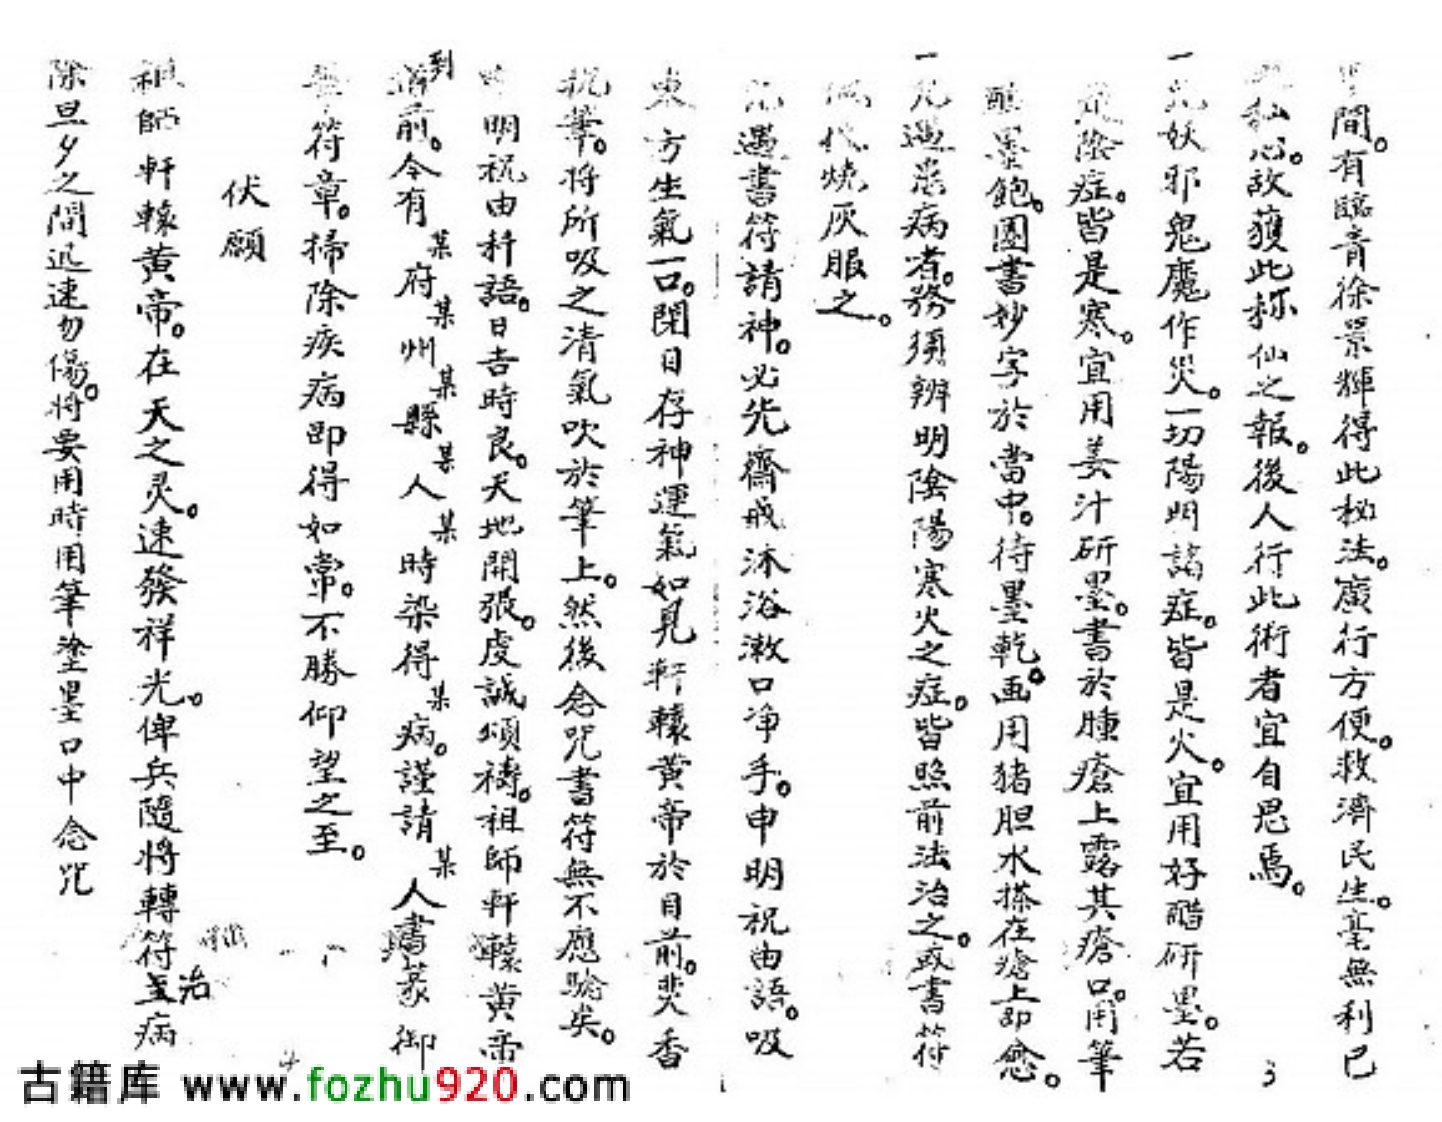 間。有臨青徐景輝得此秘法。廣行方便。救濟民生。毫無利己
私心。故獲此称仙之報。後人行此術者宜自思焉。
一凡妖邪鬼魔作災。一切陽明諸症。皆是火。宜用好醋研墨。若
是陰症。皆是寒。宜用姜汁研墨。書於腫瘡上露其瘡口。用筆
醮墨飽。圈書妙字於當中。待墨乾。画用猪胆水搽在瘡上即愈。
一凡遇患病者。務須辨明陰陽寒火之症。皆照前法治之。或書符
代燒灰服之。
凡遇書符請神。必先齋戒沐浴漱口净手。申明祝由語。吸
東方生氣一口。閉目存神運氣如見軒轅黄帝於目前。焚香
执筆。将所吸之清氣吹於筆上。然後念咒書符無不應驗矣。
明祝由科語。日吉時良。天地開張。虔誠頌禱。祖師軒轅黄帝
到前。今有某府某州某縣某人某時染得某病。謹請某人書篆御
符章。掃除疾病即得如常。不勝仰望之至。
伏願
祖師軒轅黄帝。在天之灵。速發祥光。俾兵隨將轉符至治病
除旦夕之間迅速勿傷。将要用時用筆塗墨口中念咒
3
4
古籍库 www.fozhu920.com